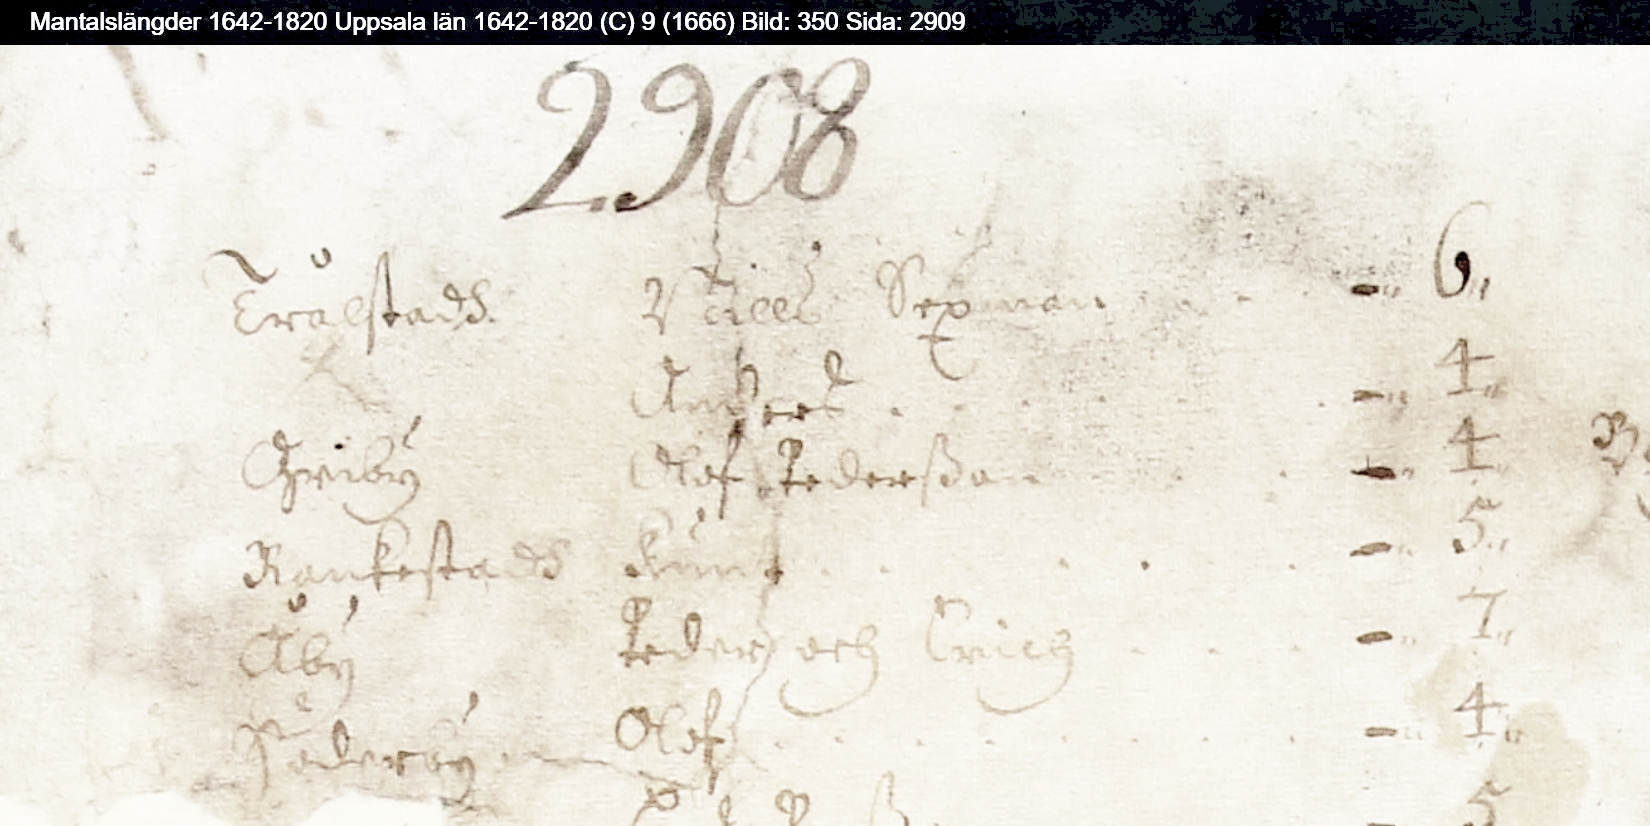 Mantalslängder 1642-1820 Uppsala län 1642-1820 (C) 9 (1666) Bild: 350 Sida: 2909
2908
Trålstadh Nills Sexman - 6
Anders - 4
Griby Olof Pederßon - 4
Rankestadh Knut - 5
Åby Peder och Erich - 7
Söderby Olof - 4
5